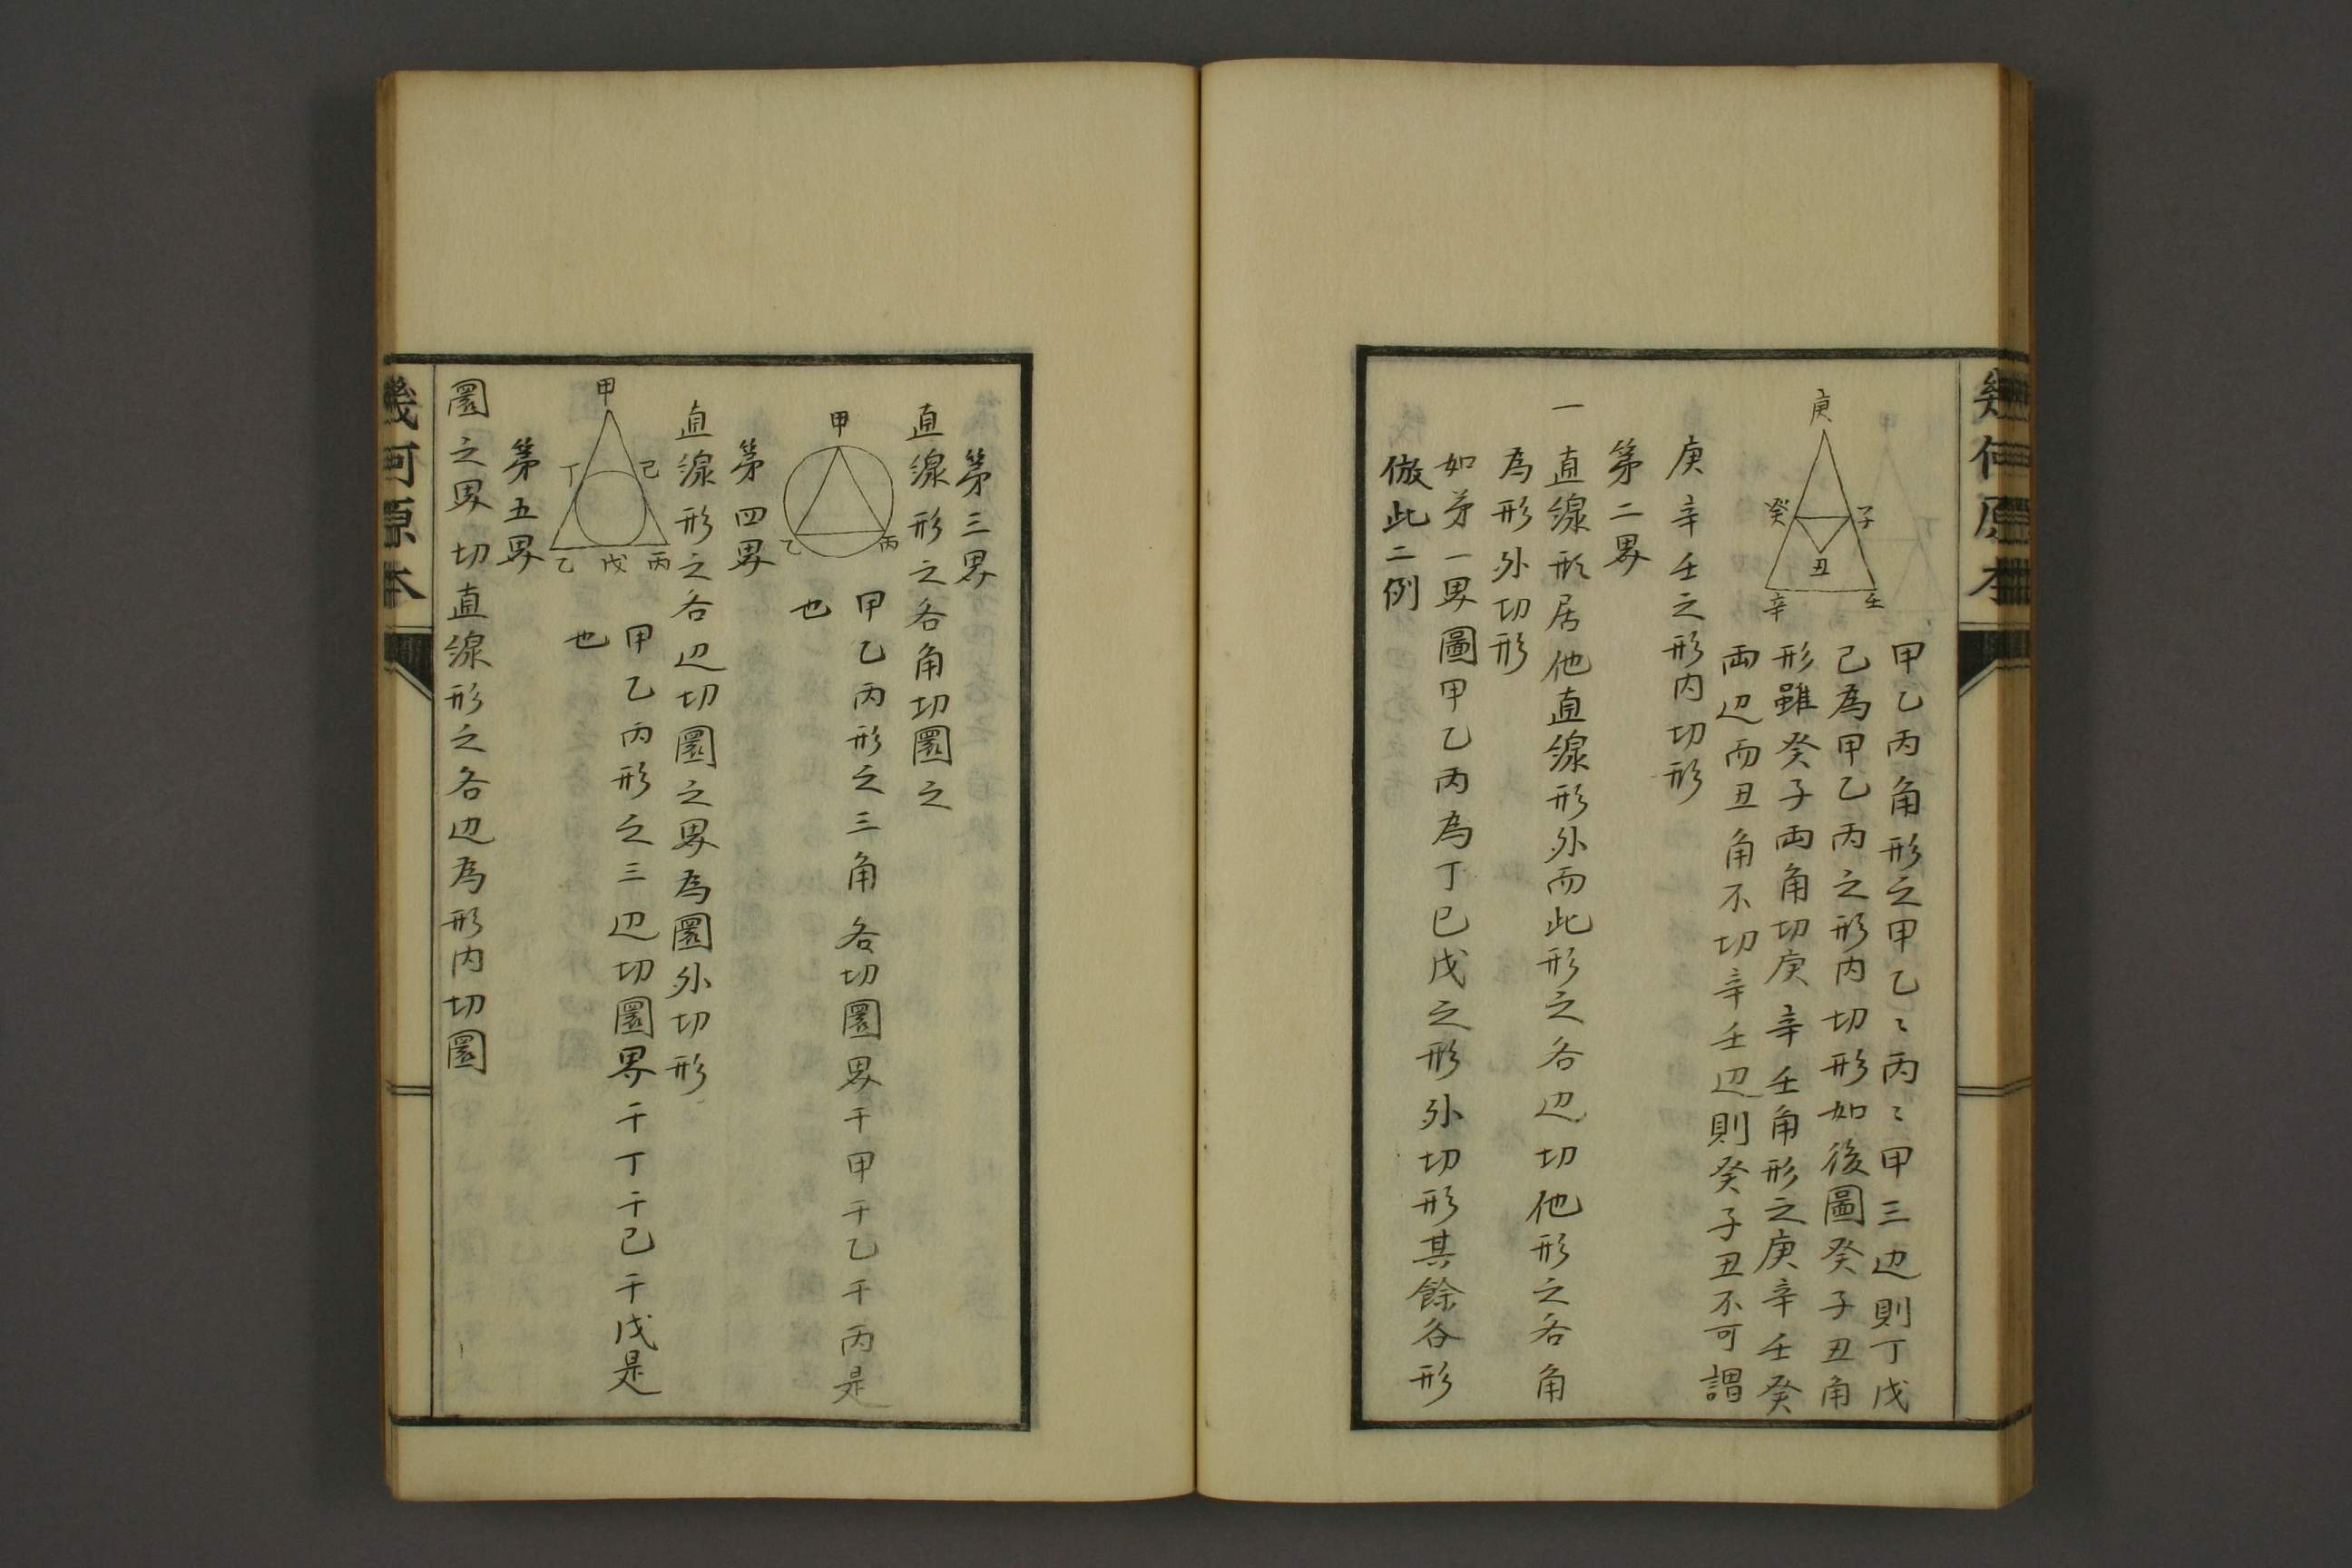 幾何原本
庚
癸
子
丑
辛
壬
甲乙丙角形之甲乙〻丙〻甲三边則丁戊
己為甲乙丙之形内切形如後圖癸子丑角
形雖癸子両角切庚辛壬角形之庚辛壬癸
両辺而丑角不切辛壬辺則癸子丑不可謂
庚辛壬之形内切形
第二界
一直線形居他直線形外而此形之各辺切他形之各角
為形外切形
如第一界圖甲乙丙為丁已戊之形外切形其餘各形
倣此二例
第三界
直線形之各角切圜之
甲
乙
丙
甲乙丙形之三角各切圜界于甲于乙于丙是
也
第四界
直線形之各辺切圜之界為圜外切形
甲
丁
己
乙
戊
丙
甲乙丙形之三辺切圜界于丁于己于戊是
也
第五界
圜之界切直線形之各边為形内切圜
幾何原本